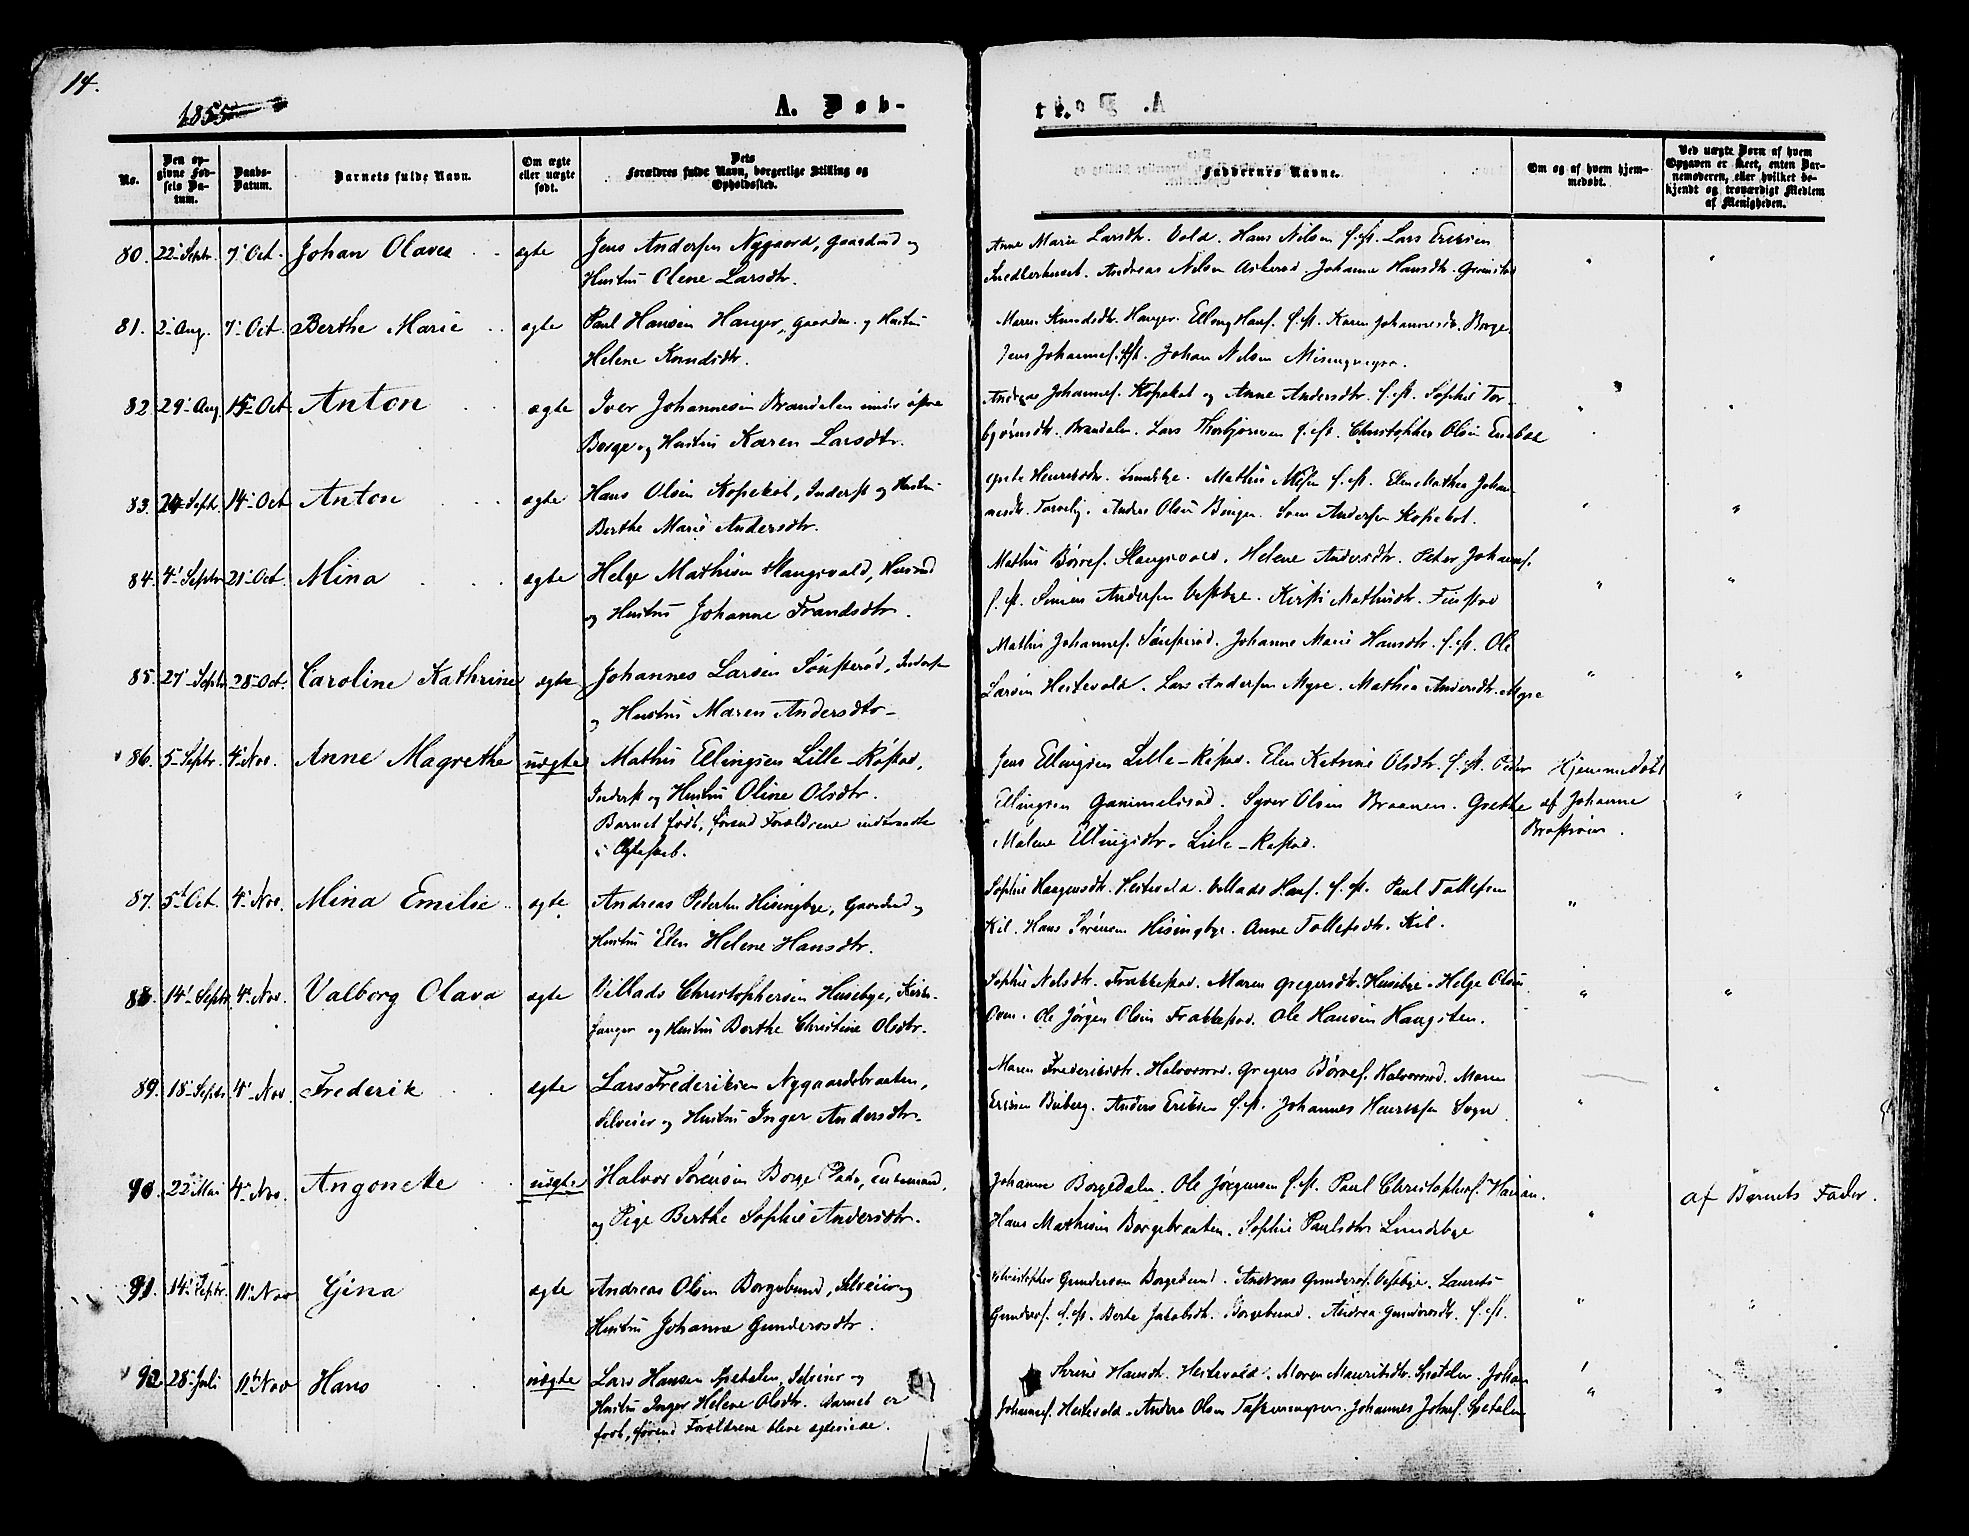 14.
1855
A. Døb-
te.
No.
Den op-
givne Fød-
sels Da-
tum.
Daabs-
Datum.
Barnets fulde Navn.
Om ægte
eller uægte
født.
Dets
Forældres fulde Navn, borgerlige Stilling og
Opholdssted.
Faddernes Navne.
Om og af hvem hjem-
medøbt.
Ved uægte Børn af hvem
Opgaven er skeet, enten Bar-
nemoderen, eller hvilket be-
kjendt og troværdigt Medlem
af Menigheden.
80. 22 Septr. 7 Oct. Johan Olaves ægte Jens Andersen Nygaard, Gaardmd og
Hustru Olene Larsdtr.
Anne Marie Larsdtr. Vold. Hans Nilsen s.st. Lars Ericsen
Snedkerhuset. Andreas Nilsen Askerød. Johanne Hansdtr. Grimstad
81. 2 Aug. 7 Oct. Berthe Marie ægte Paul Hansen Hauger, Gaardm. og Hustru
Helene Knudsdtr.
Maren Knudsdtr. Hauger. Elling Hans. s.st. Karen Johannesdtr. Borge.
Jens Johannes. s.st. Johan Nilsen
82. 29 Aug 14 Oct Anton ægte Iver Johannesen Brandalen under øfre
Borge og Hustru Karen Larsdtr.
Andreas Johannes. Kopekot og Anne Andersdtr. s.st. Sophie Tor-
bjørnsdtr. Brandalen. Lars Thorbjørnsen s.st. Christopher Olsen Enebae
83. 24 Septr. 14 Oct Anton ægte Hans Olsen Kopekot, Inderst og Hustru
Berthe Marie Andersdtr.
Grete Henrksdtr. Lundbye. Mathis s.st. Elen Mathea Johan-
nesdtr. Torvelig. Anders Olsen Bingen. Andersen Kopekot.
84. 4 Septr 21 Oct. Mina ægte Helge Mathisen Skaugsvold, Husmd
og Hustru Johanne Frandsdtr.
Mathis Børres. Skaugsvold. Helene Andersdtr. Peter Johannes.
s.st. Simen Andersen Vestbye. Kirsti Mathisdtr. Finstad
85. 27 Septr 28 Oct. Caroline Kathrine ægte Johannes Larsen Sønsterød, Inderst
og Hustru Maren Andersdtr.
Mathis Johannes. Sønsterød. Johanne Marie Hansdtr. s.st. Ole
Larsen Hestevold. Lars Andersen Myre. Mathea Andersdtr. Myre
86. 5 Septr. 4 Nov. Anne Magrethe uægte Mathis Ellingsen Lille-Røstad,
Inderst og Hustru Oline Olsdtr.
Barnet født, førend Forældrene indtraadte
i Ægteskab.
Jens Ellingsen Lille-Røstad. Elen Katrine Olsdtr. s.st. Peder
Ellingsen Gammelsrød. Syver Olsen Braanen. Grethe
Malene Ellingsdtr. Lille-Røstad.
Hjemmedøbt
af Johanne
87. 5 Oct. 4 Nov. Mina Emilie ægte Andreas Pedersen Hisingbye, Gaardmd og
Hustru Elen Helene Hansdtr.
Sophie Haagensdtr. Hestevold. Villads Hans. s.st. Paul Tollefsen
Kil. Hans Sørensen Hisingbye. Anne Tollefsdtr. Kil.
88. 14 Septr 4 Nov. Valborg Olava ægte Villads Christophersen Husebye, Kirke-
sanger og Hustru Berthe Christine Olsdtr.
Sophie Nilsdtr. Frakkestad. Maren Gregersdtr. Husebye. Helge Olsen
Oven. Ole Jørgen Olsen Frakkestad. Ole Hansen Haugsten.
89. 18 Septr 4 Nov. Frederik ægte Lars Frederiksen Nygaardsbraaten,
Selveier og Hustru Inger Andersdtr.
Maren Frederiksdtr. Halvorsrød. Gregers Børres. Halvorsrød. Maren
Ericsen Buberg. Anders Ericsen s.st. Johannes Henriksen Sogn
90 22 Mai 4 Nov. Angonette uægte Halvor Sørensen Borge Plads, Enkemand,
og Pige Berthe Sophie Andersdtr.
Johanne Borgedalen. Ole Jørgensen s.st. Paul Christophers.
Hans Mathisen Borgebraaten. Sophie Paulsdtr. Lundebye
af Barnets Fader.
91. 14 Septr. 11 Nov Gina ægte Andreas Olsen Borgebund, Selveier og
Hustru Johanne Gundersdtr.
Christopher Gundersen Borgebund. Andreas Gunders. Vestbye. Laurets
Gunders. s.st. Berte Jakobsdtr. Borgebund. Andrea Gundersdtr. s.st.
92 28 Juli 11 Nov Hans uægte Lars Hansen Spetalen, Selveier og
Hustru Inger Helene Olsdtr. Barnet er
født, førend Forældrene bleve ægteviede.
Serine Hansdt. Hestevold. Maren Mauritsdtr. Spetalen. Johan
Johannes. Hestevold. Anders Olsen Johannes Johns. Spetalen